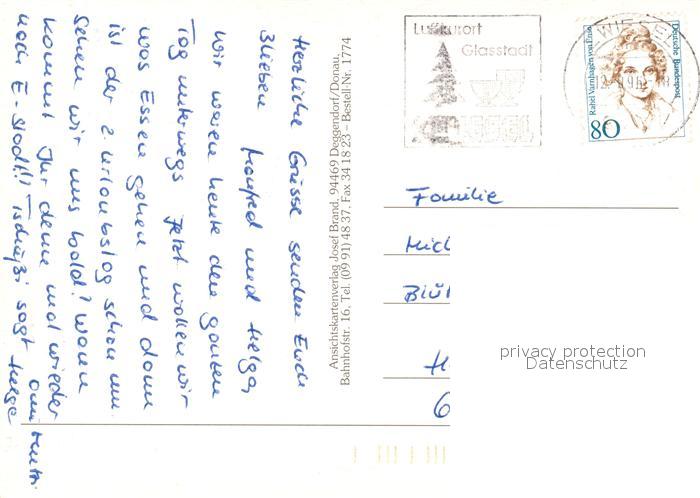 Herzliche Grüsse senden Euch
3 Lieben
Manfred und Helga,
Wir waren heute den ganzen
Tag unterwegs jetzt wollen wir
was Essen gehen und dann
ist der 2 Urlaubstag schon um.
Sehen wir uns bald? Wann
kommt Ihr denn mal wieder
nach E-Stadt!! Tschüßi sagt Helga
Ansichtskartenverlag Josef Brand, 94469 Deggendorf/Donau
Bahnhofstr. 16, Tel. (09 91) 48 37, Fax 34 18 23 – Bestell-Nr. 1774
Luftkurort
Glasstadt
ZWIESEL
Rahel Varnhagen von Ense
Deutsche Bundespost
80
Familie
Mich
Blüt
H
6
privacy protection
Datenschutz